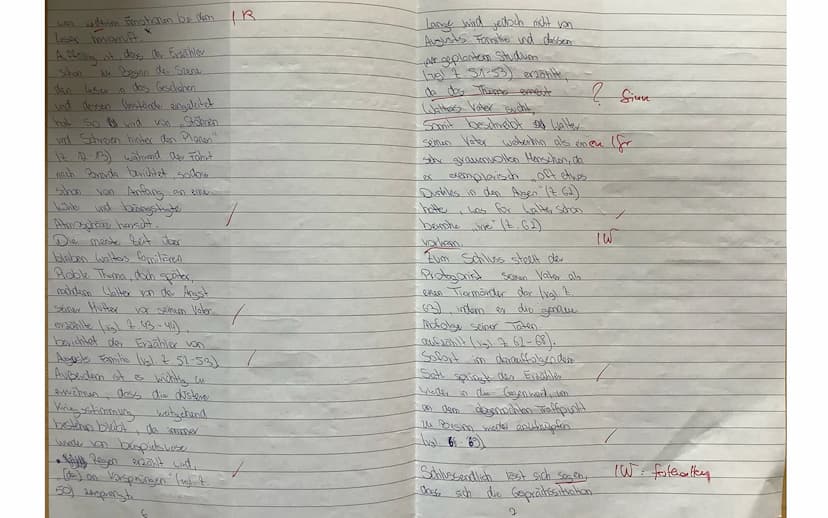 von weiteren Emotionen bei dem
Leser hervorruft.
R
Auffällig ist, dass der Erzähler
schon zu Beginn der Szene
den Leser in das Geschehen
und dessen Umstände eingeleitet
hat so und von „Stöhnen
und Schreien hinter den Planen"
(Z. 12-13) während der Fahrt
nach berichtet, sodass
schon von Anfang an eine
und beängstigte
Atmosphäre herrscht.
Die meiste Zeit über
bleiben Walters familiären
Thema, doch später,
nachdem Walter von der Angst
seiner Mutter vor seinem Vater
erzählte (vgl. Z 43-44),
berichtet der Erzähler von
Augusts Familie (vgl. Z 51-53)
Außerdem ist es wichtig zu
erwähnen, dass die düstere
Kriegsstimmung weitgehend
bestehen bleibt, da immer
wieder von beispielsweise
Regen erzählt wird,
„[der] an Vorsprüngen" (vgl. Z
50)
6
Lange wird jedoch nicht von
Augusts Familie und dessen
geplantem Studium
(vgl. Z 51-53) erzählt,
da das Thema erneut
Walters Vater
? Sinn
Somit beschreibt Walter
seinen Vater weiterhin als einen
en Gr
sehr grauenvollen Menschen, da
er exemplarisch „oft etwas
Dunkles in den Augen" (Z. 62)
hatte, was für Walter schon
beinahe „irre" (Z. 62)
vorkam.
W
Zum Schluss stellt der
Protagonist seinen Vater als
einen Tiermörder dar (vgl. Z.
63), indem er die genaue
Abfolge seiner Taten
aufzählt (vgl. Z 62-68).
Sofort im darauffolgendem
Satz springt der Erzähler
wieder in die Gegenwart, um
an dem abgemachten Treffpunkt
zu Beginn wieder anzuknüpfen
(vgl. 69)
Schlussendlich lässt sich sagen,
W: festhalten
dass sich die Gesprächssituation
7